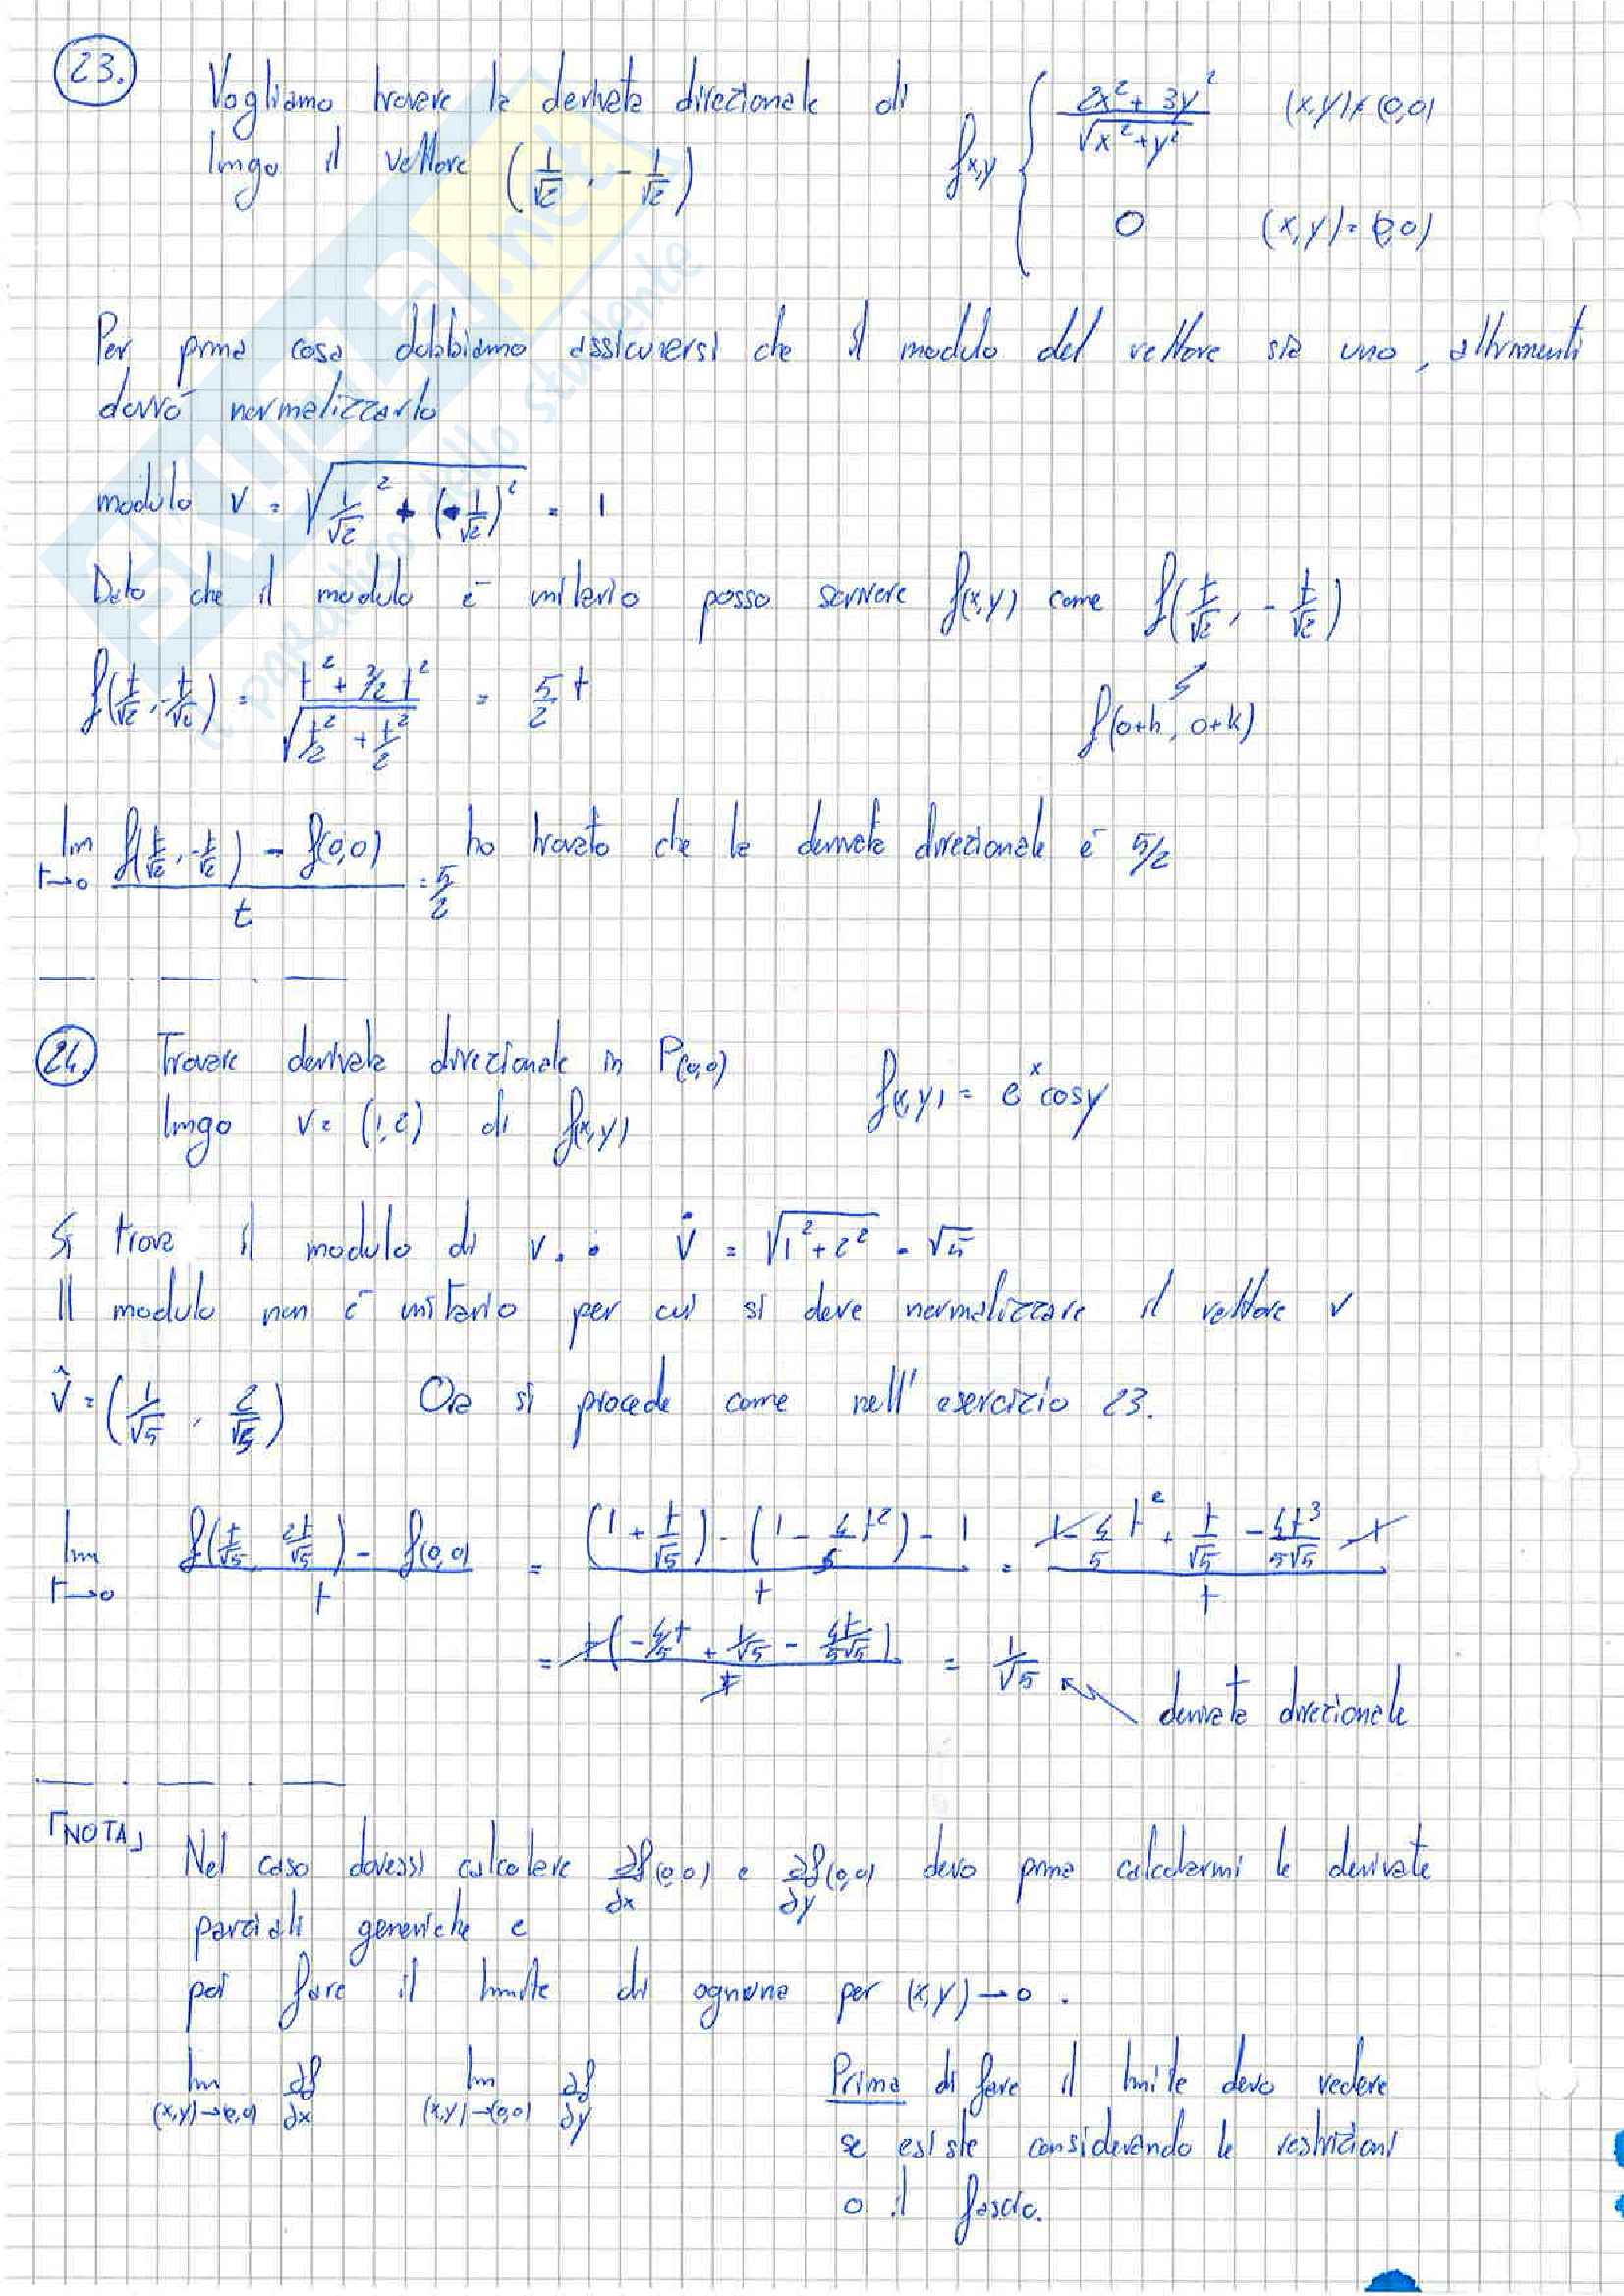 23. Vogliamo trovare la derivata direzionale di f(x,y) { (2x² + 3y²)/√(x²+y²) (x,y)≠(0,0)
lungo il vettore (1/√2, -1/√2)
0 (x,y)=(0,0)
Per prima cosa dobbiamo assicurarsi che il modulo del vettore sia uno, altrimenti
dovrò normalizzarlo
modulo v = √(1/√2² + (-1/√2)²) = 1
Dato che il modulo è unitario posso scrivere f(x,y) come f(t/√2, -t/√2)
f(t/√2, -t/√2) = (t² + 3/2 t²)/√(t²/2 + t²/2) = 5/2 t
f(0+h, 0+k)
lim t→0 (f(t/√2, -t/√2) - f(0,0))/t = 5/2 ho trovato che la derivata direzionale è 5/2
24. Trovare derivata direzionale in P(0,0) f(x,y) = e^x cosy
lungo v = (1,2) di f(x,y)
Si trova il modulo di v. v = √(1²+2²) = √5
Il modulo non è unitario per cui si deve normalizzare il vettore v
v̂ = (1/√5, 2/√5) Ora si procede come nell'esercizio 23.
lim t→0 (f(t/√5, 2t/√5) - f(0,0))/t = ((1 + t/√5)·(1 - 4/5 t²) - 1)/t = (1 - 4/5 t² + t/√5 - 4t³/5√5 - 1)/t
= t(-4/5 t + 1/√5 - 4t/5√5)/t = 1/√5 derivata direzionale
NOTA
Nel caso dovessi calcolare ∂f/∂x(0,0) e ∂f/∂y(0,0) devo prima calcolarmi le derivate
parziali generiche e
poi fare il limite di ognuna per (x,y)→0.
lim (x,y)→(0,0) ∂f/∂x lim (x,y)→(0,0) ∂f/∂y
Prima di fare il limite devo vedere
se esiste considerando le restrizioni
o il fascio.
SKUOLA.net
il paradiso dello studente